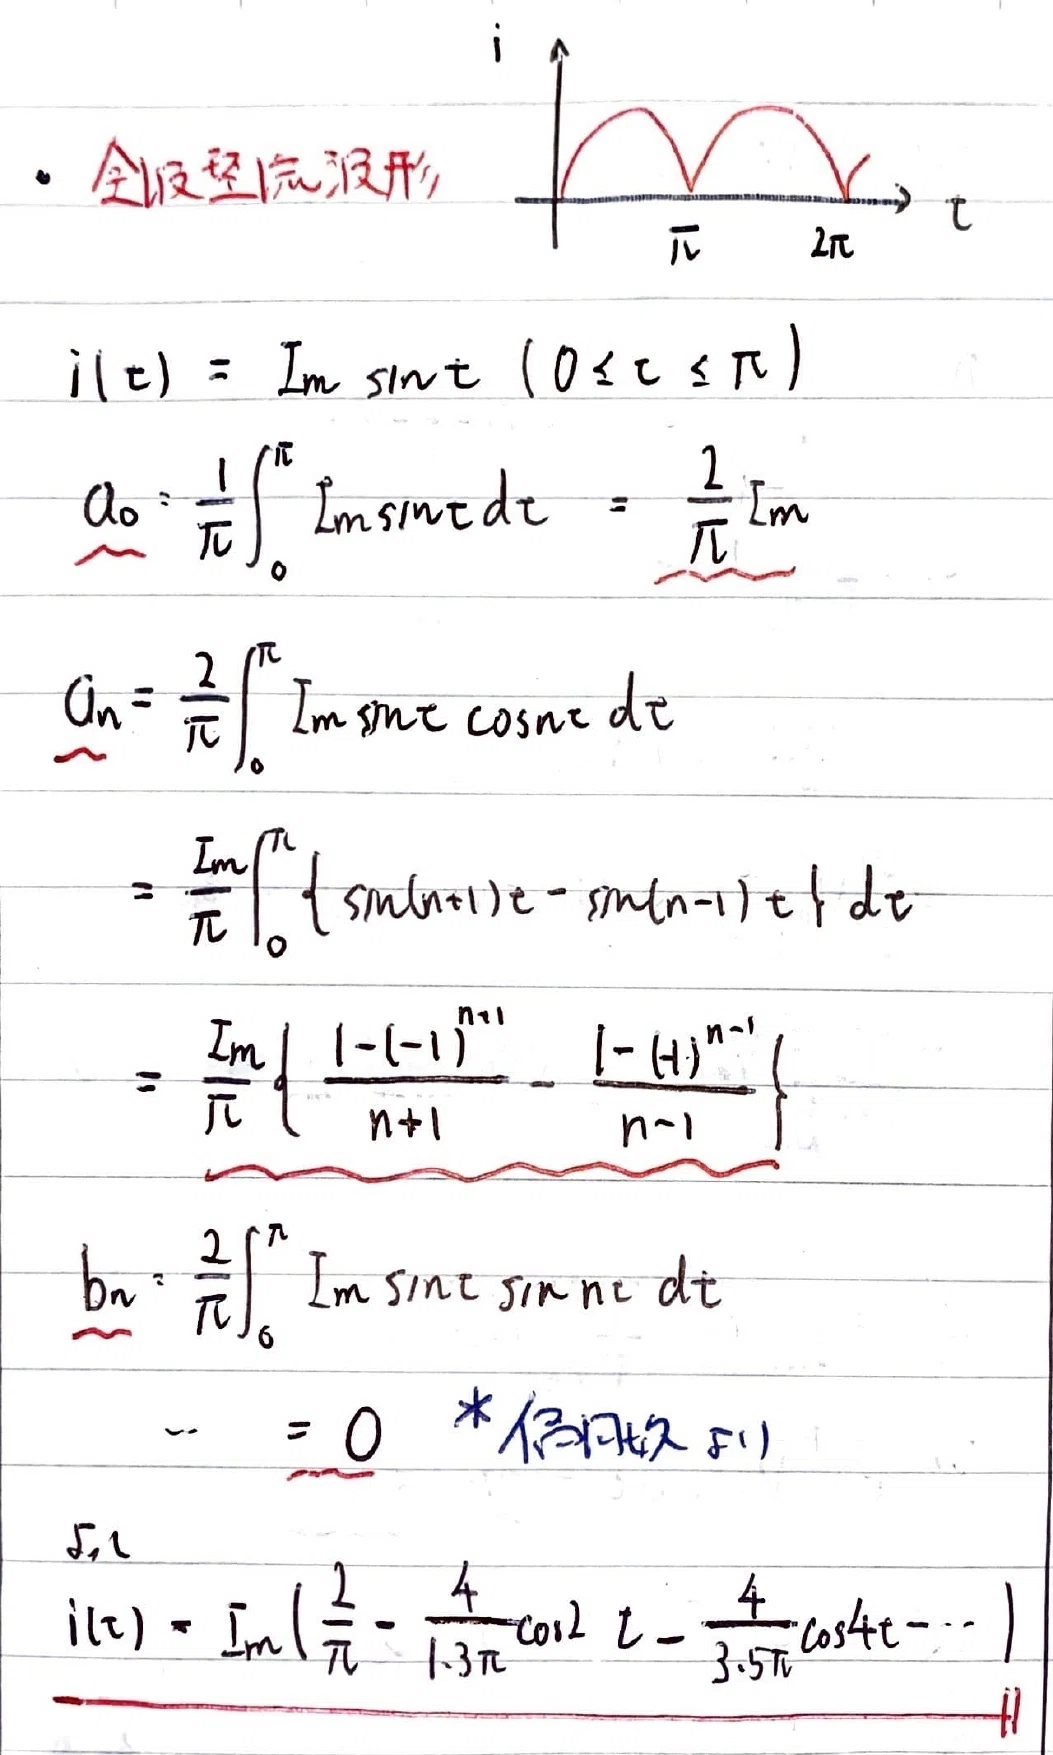 i
・全波整流波形
t
π 2π
i(t) = Im sint (0 ≤ t ≤ π)
a₀ = 1/π ∫₀^π Im sint dt = 2/π Im
aₙ = 2/π ∫₀^π Im sint cosnt dt
= Im/π ∫₀^π { sin(n+1)t - sin(n-1)t } dt
= Im/π { (1-(-1)^(n+1))/(n+1) - (1-(-1)^(n-1))/(n-1) }
bₙ = 2/π ∫₀^π Im sint sin nt dt
… = 0 *偶関数より
よって
i(t) = Im ( 2/π - 4/(1・3π) cos2t - 4/(3・5π) cos4t - … )